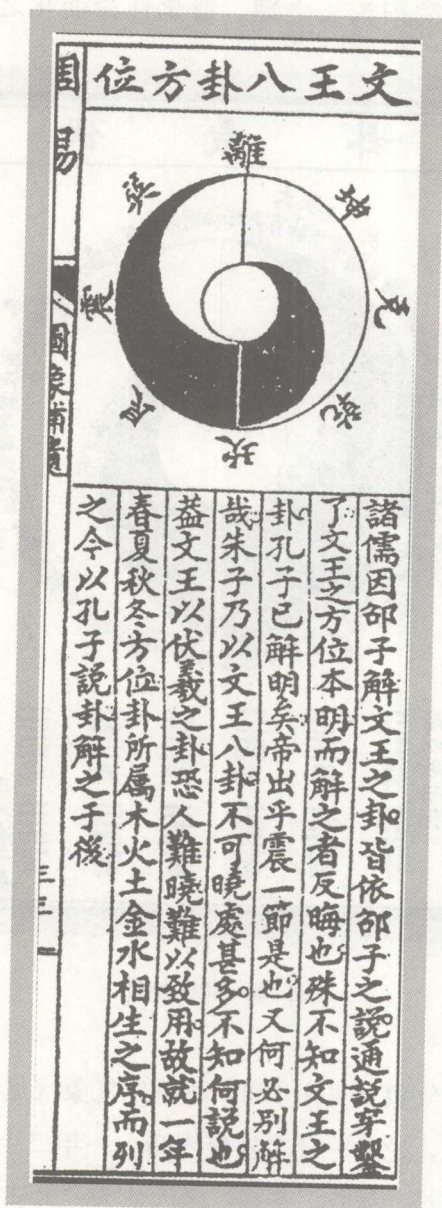 文王八卦方位
離
坤
兌
乾
坎
艮
震
巽
諸儒因邵子解文王之卦皆依邵子之說通說穿鑿
了文王之方位本明而解之者反晦也殊不知文王之
卦孔子已解明矣帝出乎震一節是也又何必別解
哉朱子乃以文王八卦不可曉處甚多不知何說也
葢文王以伏羲之卦恐人難曉難以致用故就一年
春夏秋冬方位卦所屬木火土金水相生之序而列
之今以孔子說卦解之于後
周易
圖象補遺
三三